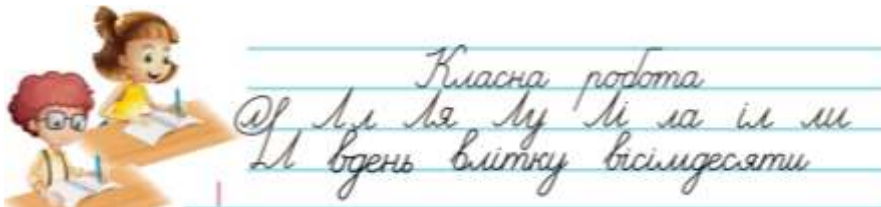 Класна робота
л Лл Ля Лу Лі ла іл ли
Л вдень влітку вісімдесяти